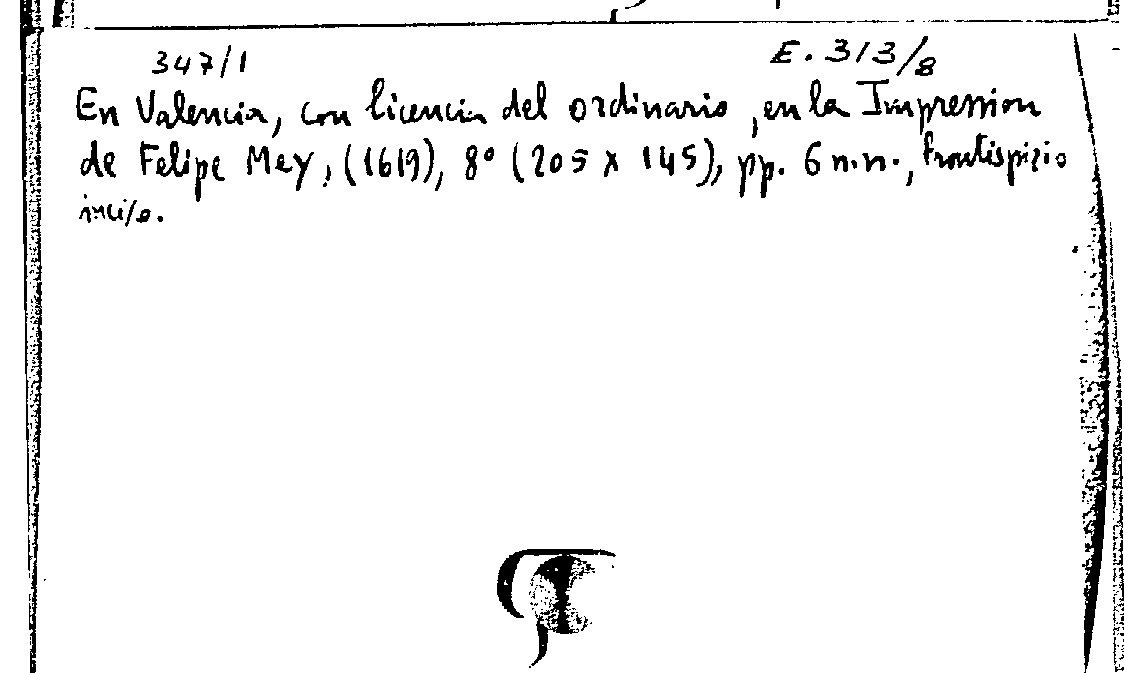 347/1 E. 313/8
En Valencia, con licencia del ordinario, en la Impression
de Felipe Mey, (1619), 8° (205 x 145), pp. 6 n.n., frontispizio
inciso.